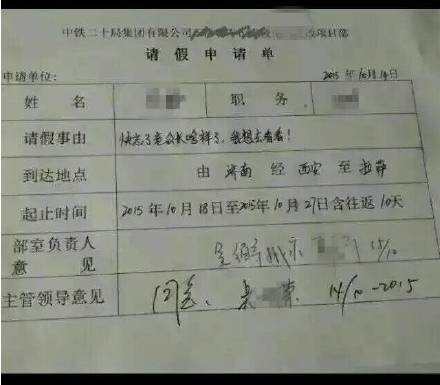 中铁二十局集团有限公司 改项目部
请假申请单
申请单位: 2015年10月14日
姓名 职务
请假事由 快忘了老公长啥样了,我想去看看!
到达地点 由 济南 经 西安 至 拉萨
起止时间 2015年10月18日至2015年10月27日含往返10天
部室负责人
意见 15/10
主管领导意见 同意、 14/10-2015